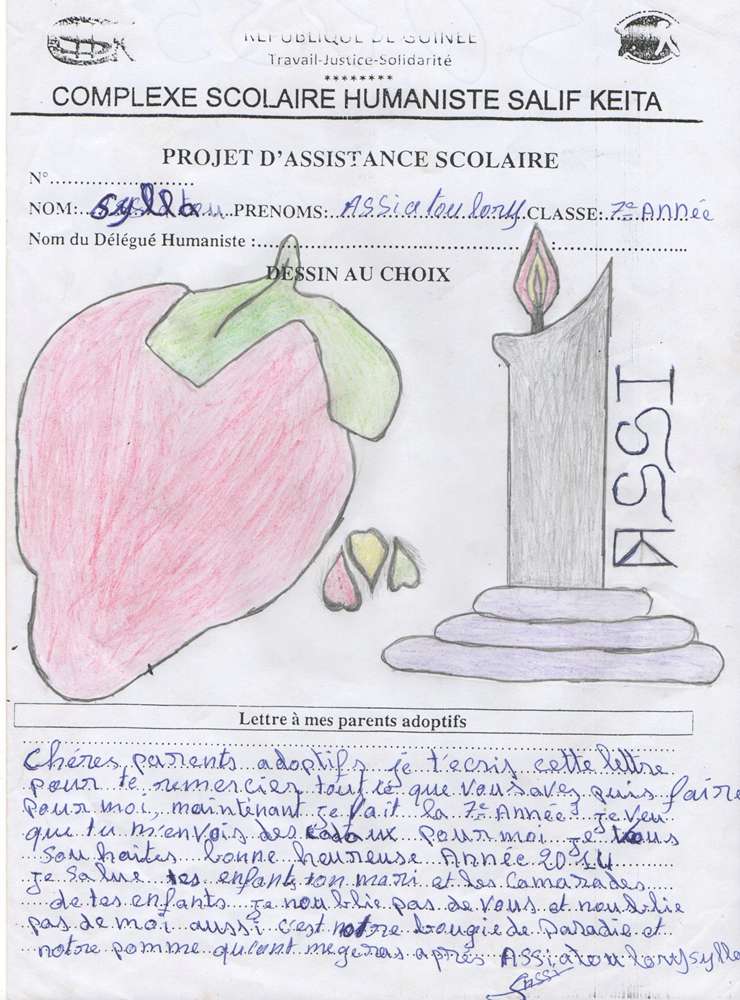 REPUBLIQUE DE GUINEE
Travail-Justice-Solidarité
********
COMPLEXE SCOLAIRE HUMANISTE SALIF KEITA
PROJET D'ASSISTANCE SCOLAIRE
N°........................
NOM: Sylla PRENOMS: Assiatou lory CLASSE: 7e Année
Nom du Délégué Humaniste :
DESSIN AU CHOIX
ISSK
Lettre à mes parents adoptifs
Chéres parents adoptifs je t'ecris cette lettre
pour te remercier tout ce que vous aves puis faire
pour moi, maintenant je fait la 7e Année. je veu
que tu m'envois des cadaux pour moi je vous
souhaites bonne heureuse Année 2014
je salue tes enfants ton mari et les camarades
de tes enfants je noublie pas de vous et noublie
pas de moi aussi c'est notre bougie de paradie et
notre pomme qu'ont megeras aprés Assiatou lory sylla
Assi